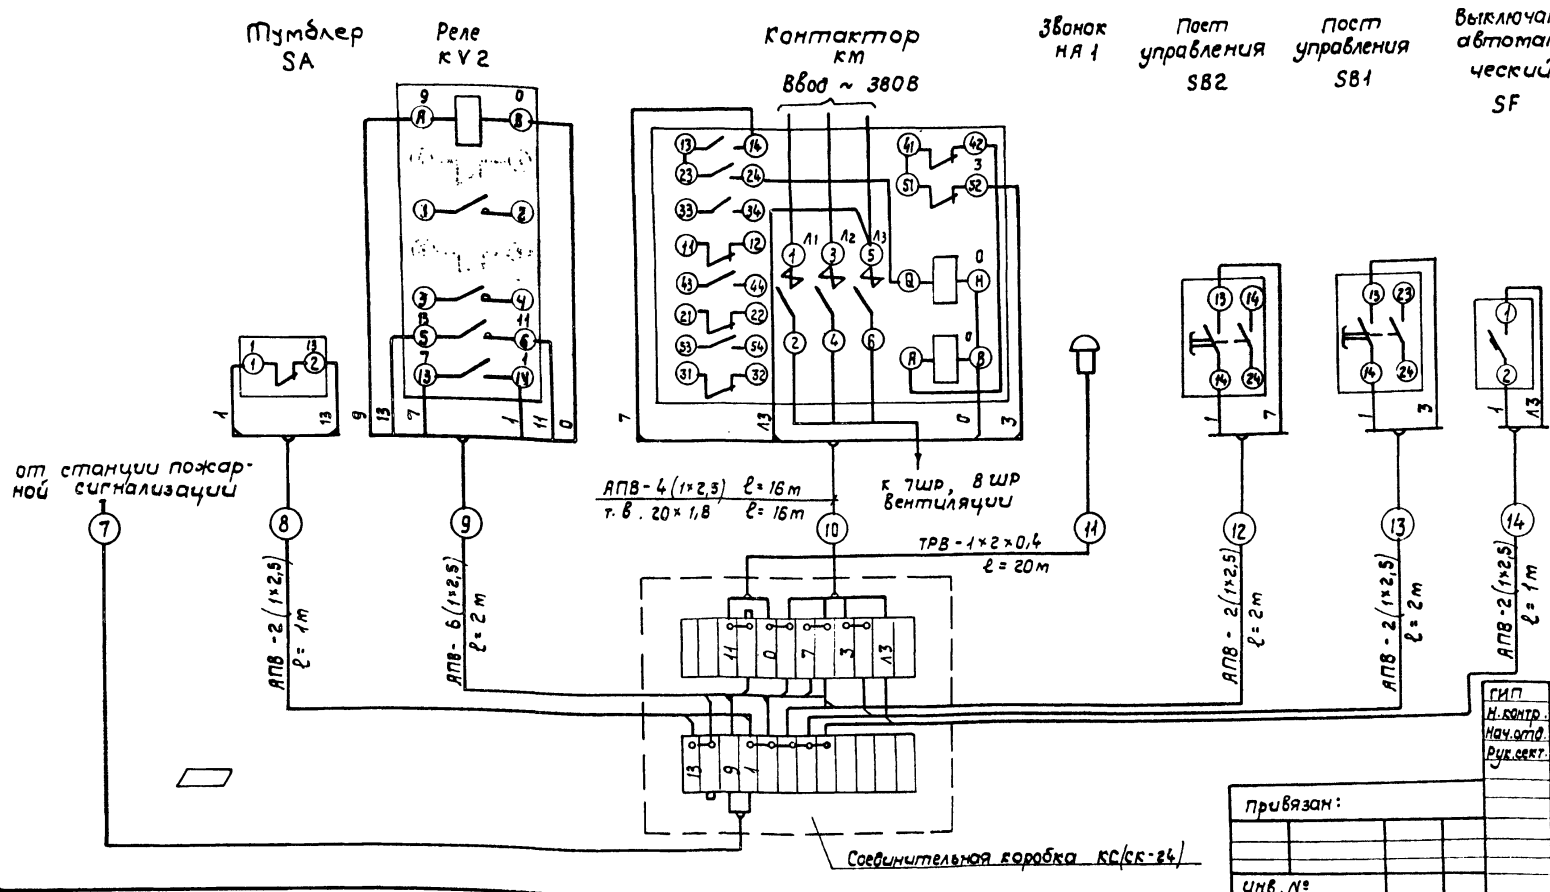 Тумблер
SA
Реле
KV2
Контактор
КМ
Ввод ~ 380В
Звонок
НА1
Пост
управления
SB2
Пост
управления
SB1
SF
9 0
А В
1 2
3 4
13 11
5 6
7 1
13 14
1 13
1 2
1 13
9 13 7 1 11 0
13 14
23 24
33 34
11 12
43 44
21 22
53 54
31 32
41 42
3
51 52
Л1 Л2 Л3
1 3 5
2 4 6
0
Н
0
А В
7 Л3 0 3
13 14
14 24
1 7
13 23
14 24
1 3
1
2
1 Л3
от станции пожар-
ной сигнализации
АПВ-4(1×2,5) ℓ=16м
т.в. 20×1,8 ℓ=16м
к 7ШР, 8ШР
вентиляции
7 8 9 10 11 12 13 14
ТРВ-1×2×0,4
ℓ=20м
АПВ-2(1×2,5)
ℓ=1м
АПВ-6(1×2,5)
ℓ=2м
АПВ-2(1×2,5)
ℓ=2м
АПВ-2(1×2,5)
ℓ=2м
АПВ-2(1×2,5)
ℓ=1м
11 0 7 3 Л3
13 9 1
Соединительная коробка КС(СК-24)
ГИП
Н.контр.
Нач.отд.
Рук.сект.
Привязан:
Инв. №